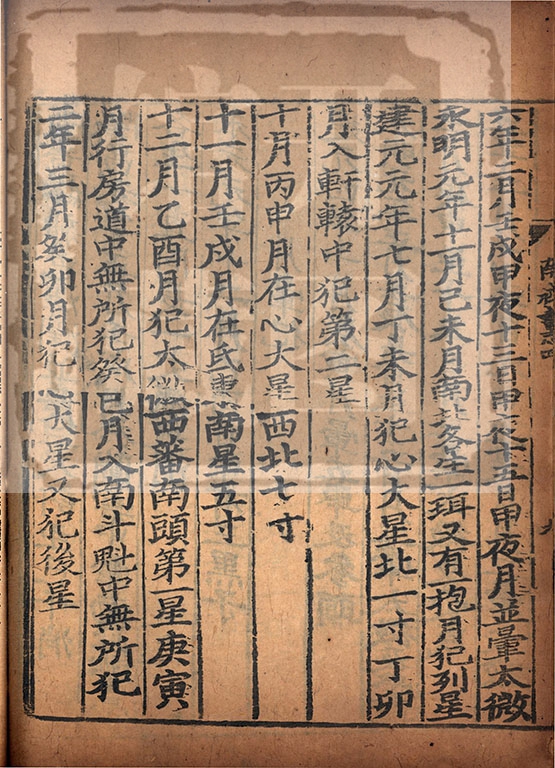 六年二月八壬戌甲夜十三日甲夜十五日甲夜月並暈太微
永明元年十一月己未月南北各生一珥又有一抱月犯列星
建元元年七月丁未月犯心大星北一寸丁卯
月入軒轅中犯第二星
十月丙申月在心大星西北七寸
十一月壬戌月在氐東南星五寸
十二月乙酉月犯太微西蕃南頭第一星庚寅
月行房道中無所犯癸巳月入南斗魁中無所犯
二年三月癸卯月犯心大星又犯後星